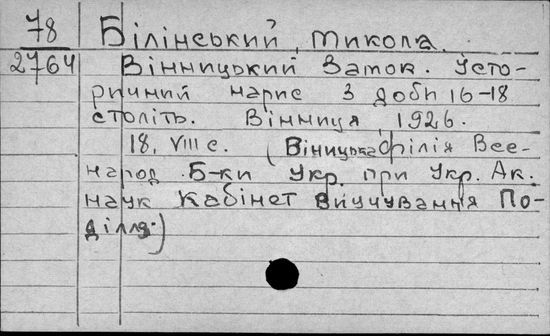 78
2764
Білінський, Микола.
Вінницький Замок. Істо-
ричний нарис з доби 16-18
століть. Вінниця, 1926.
18, VIII с. (Вінницька філія Все-
народ. Б-ки Укр. при Укр. Ак.
наук Кабінет Виучування По-
ділля.)